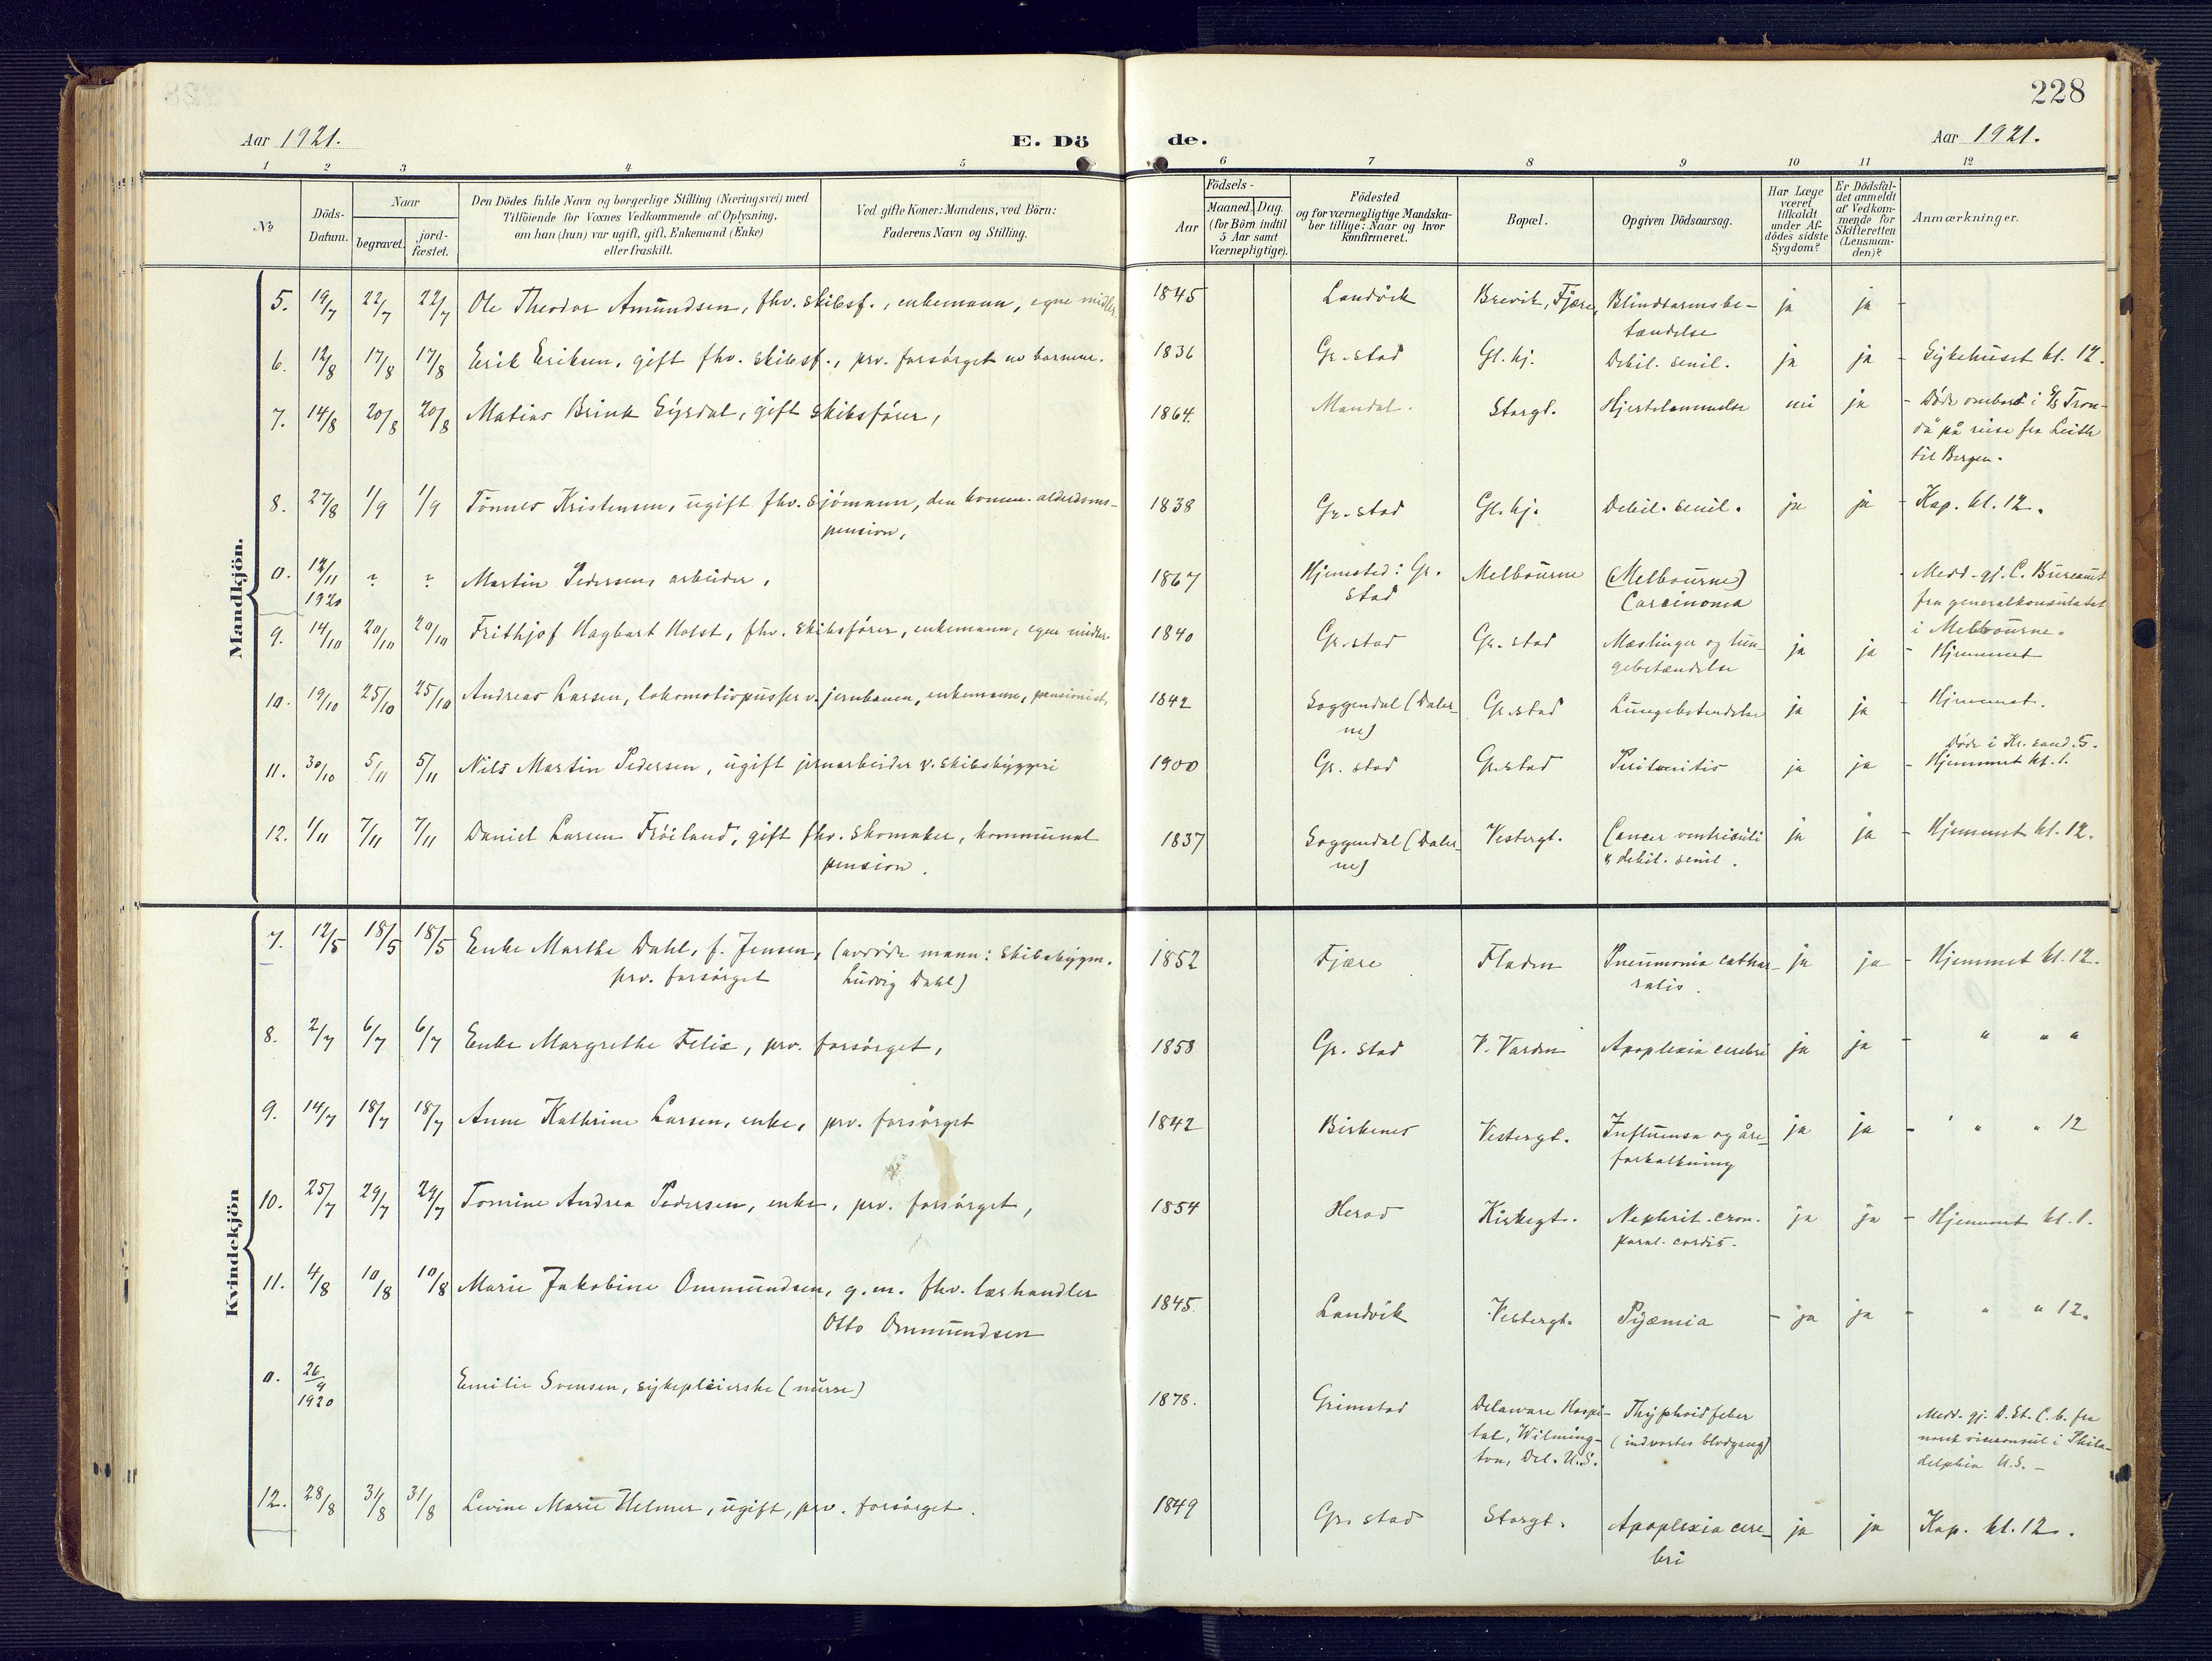 228
Aar 1921.
E. Dö
de.
Aar 1921.
1 2 3 4 5 6 7 8 9 10 11 12
№
Döds-
Datum.
Naar
begravet.
jord-
fæstet.
Den Dödes fulde Navn og borgerlige Stilling (Næringsvei) med
Tilföiende for Voxnes Vedkommende af Oplysning,
om han (hun) var ugift, gift, Enkemand (Enke)
eller fraskilt.
Ved gifte Koner: Mandens, ved Börn:
Faderens Navn og Stilling.
Födsels-
Aar
Maaned. Dag.
(for Börn indtil
5 Aar samt
Værnepligtige).
Födested
og for værnepligtige Mandska-
ber tillige: Naar og hvor
konfirmeret.
Bopæl.
Opgiven Dödsaarsag.
Har Læge
været
tilkaldt
under Af-
dödes sidste
Sygdom?
Er Dödsfal-
det anmeldt
af Vedkom-
mende for
Skifteretten
(Lensman-
den)?
Anmærkninger.
Mandkjön.
5. 19/7 22/7 22/7 Ole Theodor Amundsen, fhv. skibsf., enkemann, egne midler. 1845 Landvik Brevik, Fjære, Blindtarmsbe-
tændelse ja ja -
6. 12/8 17/8 17/8 Erik Eriksen, gift fhv. skibsf., prv. forsörget av barnene. 1836 Gr.stad Gl. hj. Debil. senil. ja ja - Sykehuset kl. 12.
7. 14/8 20/8 20/8 Matias Brink Syrdal, gift skibsförer, 1864. Mandal. Storgt. Hjertelammelse nei ja - Döde ombord i S/S Tron-
dä på reise fra Leith
til Bergen.
8. 27/8 1/9 1/9 Tönnes Kristensen, ugift fhv. sjömann, den komm. alderdoms-
pension, 1838 Gr.stad Gl. hj. Debil. senil. ja ja - Kap. kl. 12.
0. 12/11 1920 ? ? Martin Pedersen, arbeider, 1867 Hjemsted: Gr.
stad Melbourne (Melbourne)
Carcinoma Medd. gj. C. Bureauet
fra generalkonsulatet
i Melbourne.
9. 14/10 20/10 20/10 Frithjof Hagbart Holst, fhv. skibsförer, enkemann, egne midler. 1840 Gr.stad Gr.stad Mæslinger og lun-
gebetændelse ja ja - Hjemmet
10. 19/10 25/10 25/10 Andreas Larsen, lokomotivpusser v. jernbanen, enkemann, pensionist, 1842 Soggendal (Daler-
ne) Gr.stad Lungebetendelse ja ja - Hjemmet.
11. 30/10 5/11 5/11 Nils Martin Pedersen, ugift jernarbeider v. skibsbyggeri 1900 Gr. stad Gr.stad Peritonitis ja ja - Döde i Kr.sand S.
Hjemmet kl. 1.
12. 1/11 7/11 7/11 Daniel Larsen Fröiland, gift fhv. skomaker, kommunal
pension. 1837 Soggendal (Daler-
ne) Vestergt. Cancer ventriculi
& debil. senil. ja ja - Hjemmet kl. 12.
Kvindekjön
7. 12/5 18/5 18/5 Enke Marthe Dahl, f. Jensen, (avdöde mann: skibsbygm.
prv. forsörget Ludvig Dahl) 1852 Fjære Fladen Pneumonia cathar-
ralis. ja ja - Hjemmet kl. 12.
8. 2/7 6/7 6/7 Enke Margrethe Felix, prv. forsörget, 1858 Gr. stad V. Varden Apoplexia cerebri ja ja - " " "
9. 14/7 18/7 18/7 Anne Kathrine Larsen, enke, prv. forsörget 1842 Birkenes Vestergt. Influensa og åre-
forkalkning ja ja - " " 12
10. 25/7 29/7 29/7 Tomine Andrea Pedersen, enke, prv. forsörget, 1854 Herad Kirkegt. Nephrit. cron.
paral. cordis. ja ja - Hjemmet kl. 1.
11. 4/8 10/8 10/8 Marie Jakobine Ommundsen, g. m. fhv. lærhandler
Otto Ommundsen 1845. Landvik Vestergt. Pyæmia - ja ja - " " 12.
0. 26/9 1920 Emilie Svensen, sykepleierske (nurse) 1878. Grimstad Delaware Hospi-
tal, Wilming-
ton, Del. U.S. Thyphoidfeber
(indvortes blodgang) Medd. gj. D. St. C. b. fra
norsk vicekonsul i Phila-
delphia U.S. -
12. 28/8 31/8 31/8 Levine Marie Helmer, ugift, prv. forsörget. 1849 Gr. stad Storgt. Apoplexia cere-
bri ja ja Kap. kl. 12.